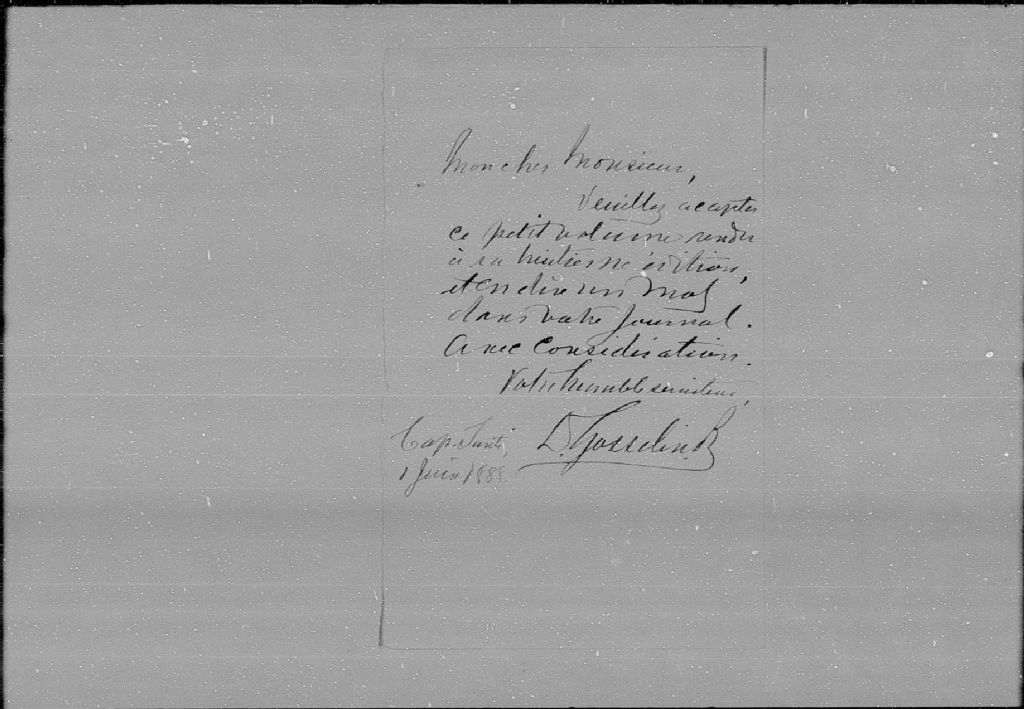 Mon cher Monsieur,
Veuillez accepter
ce petit volume rendu
à sa huitième édition,
et en dire un mot
dans votre journal.
Avec considération.
Votre humble serviteur,
D. Gosselin. P.
Cap Santé,
1 Juin 1888.